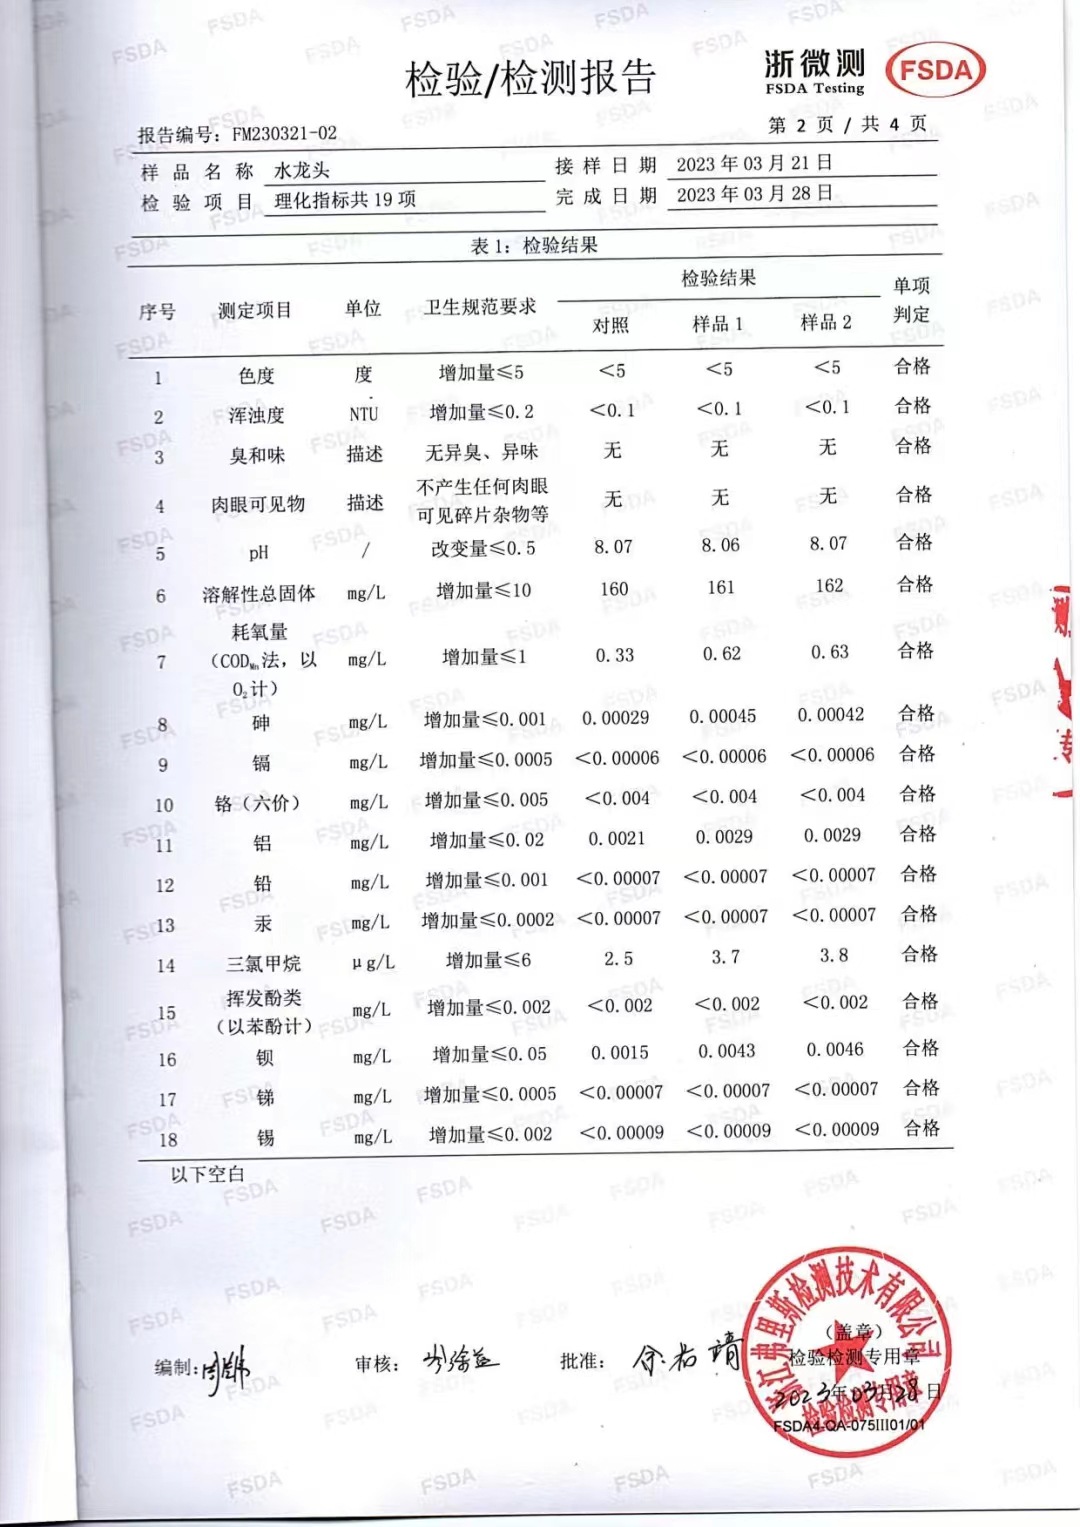 检验/检测报告
浙微测
FSDA Testing
FSDA
报告编号：FM230321-02
第 2 页 / 共 4 页
样品名称 水龙头 接样日期 2023年03月21日
检验项目 理化指标共19项 完成日期 2023年03月28日
表1：检验结果
序号 测定项目 单位 卫生规范要求 检验结果 单项判定
对照 样品1 样品2
1 色度 度 增加量≤5 <5 <5 <5 合格
2 浑浊度 NTU 增加量≤0.2 <0.1 <0.1 <0.1 合格
3 臭和味 描述 无异臭、异味 无 无 无 合格
4 肉眼可见物 描述 不产生任何肉眼可见碎片杂物等 无 无 无 合格
5 pH / 改变量≤0.5 8.07 8.06 8.07 合格
6 溶解性总固体 mg/L 增加量≤10 160 161 162 合格
7 耗氧量（CODMn法，以O₂计） mg/L 增加量≤1 0.33 0.62 0.63 合格
8 砷 mg/L 增加量≤0.001 0.00029 0.00045 0.00042 合格
9 镉 mg/L 增加量≤0.0005 <0.00006 <0.00006 <0.00006 合格
10 铬（六价） mg/L 增加量≤0.005 <0.004 <0.004 <0.004 合格
11 铝 mg/L 增加量≤0.02 0.0021 0.0029 0.0029 合格
12 铅 mg/L 增加量≤0.001 <0.00007 <0.00007 <0.00007 合格
13 汞 mg/L 增加量≤0.0002 <0.00007 <0.00007 <0.00007 合格
14 三氯甲烷 μg/L 增加量≤6 2.5 3.7 3.8 合格
15 挥发酚类（以苯酚计） mg/L 增加量≤0.002 <0.002 <0.002 <0.002 合格
16 钡 mg/L 增加量≤0.05 0.0015 0.0043 0.0046 合格
17 锑 mg/L 增加量≤0.0005 <0.00007 <0.00007 <0.00007 合格
18 锡 mg/L 增加量≤0.002 <0.00009 <0.00009 <0.00009 合格
以下空白
编制： 审核： 批准：
浙江弗里斯检测技术有限公司
（盖章）
检验检测专用章
2023年03月28日
检验检测专用章
FSDA4-QA-075III01/01
测
专